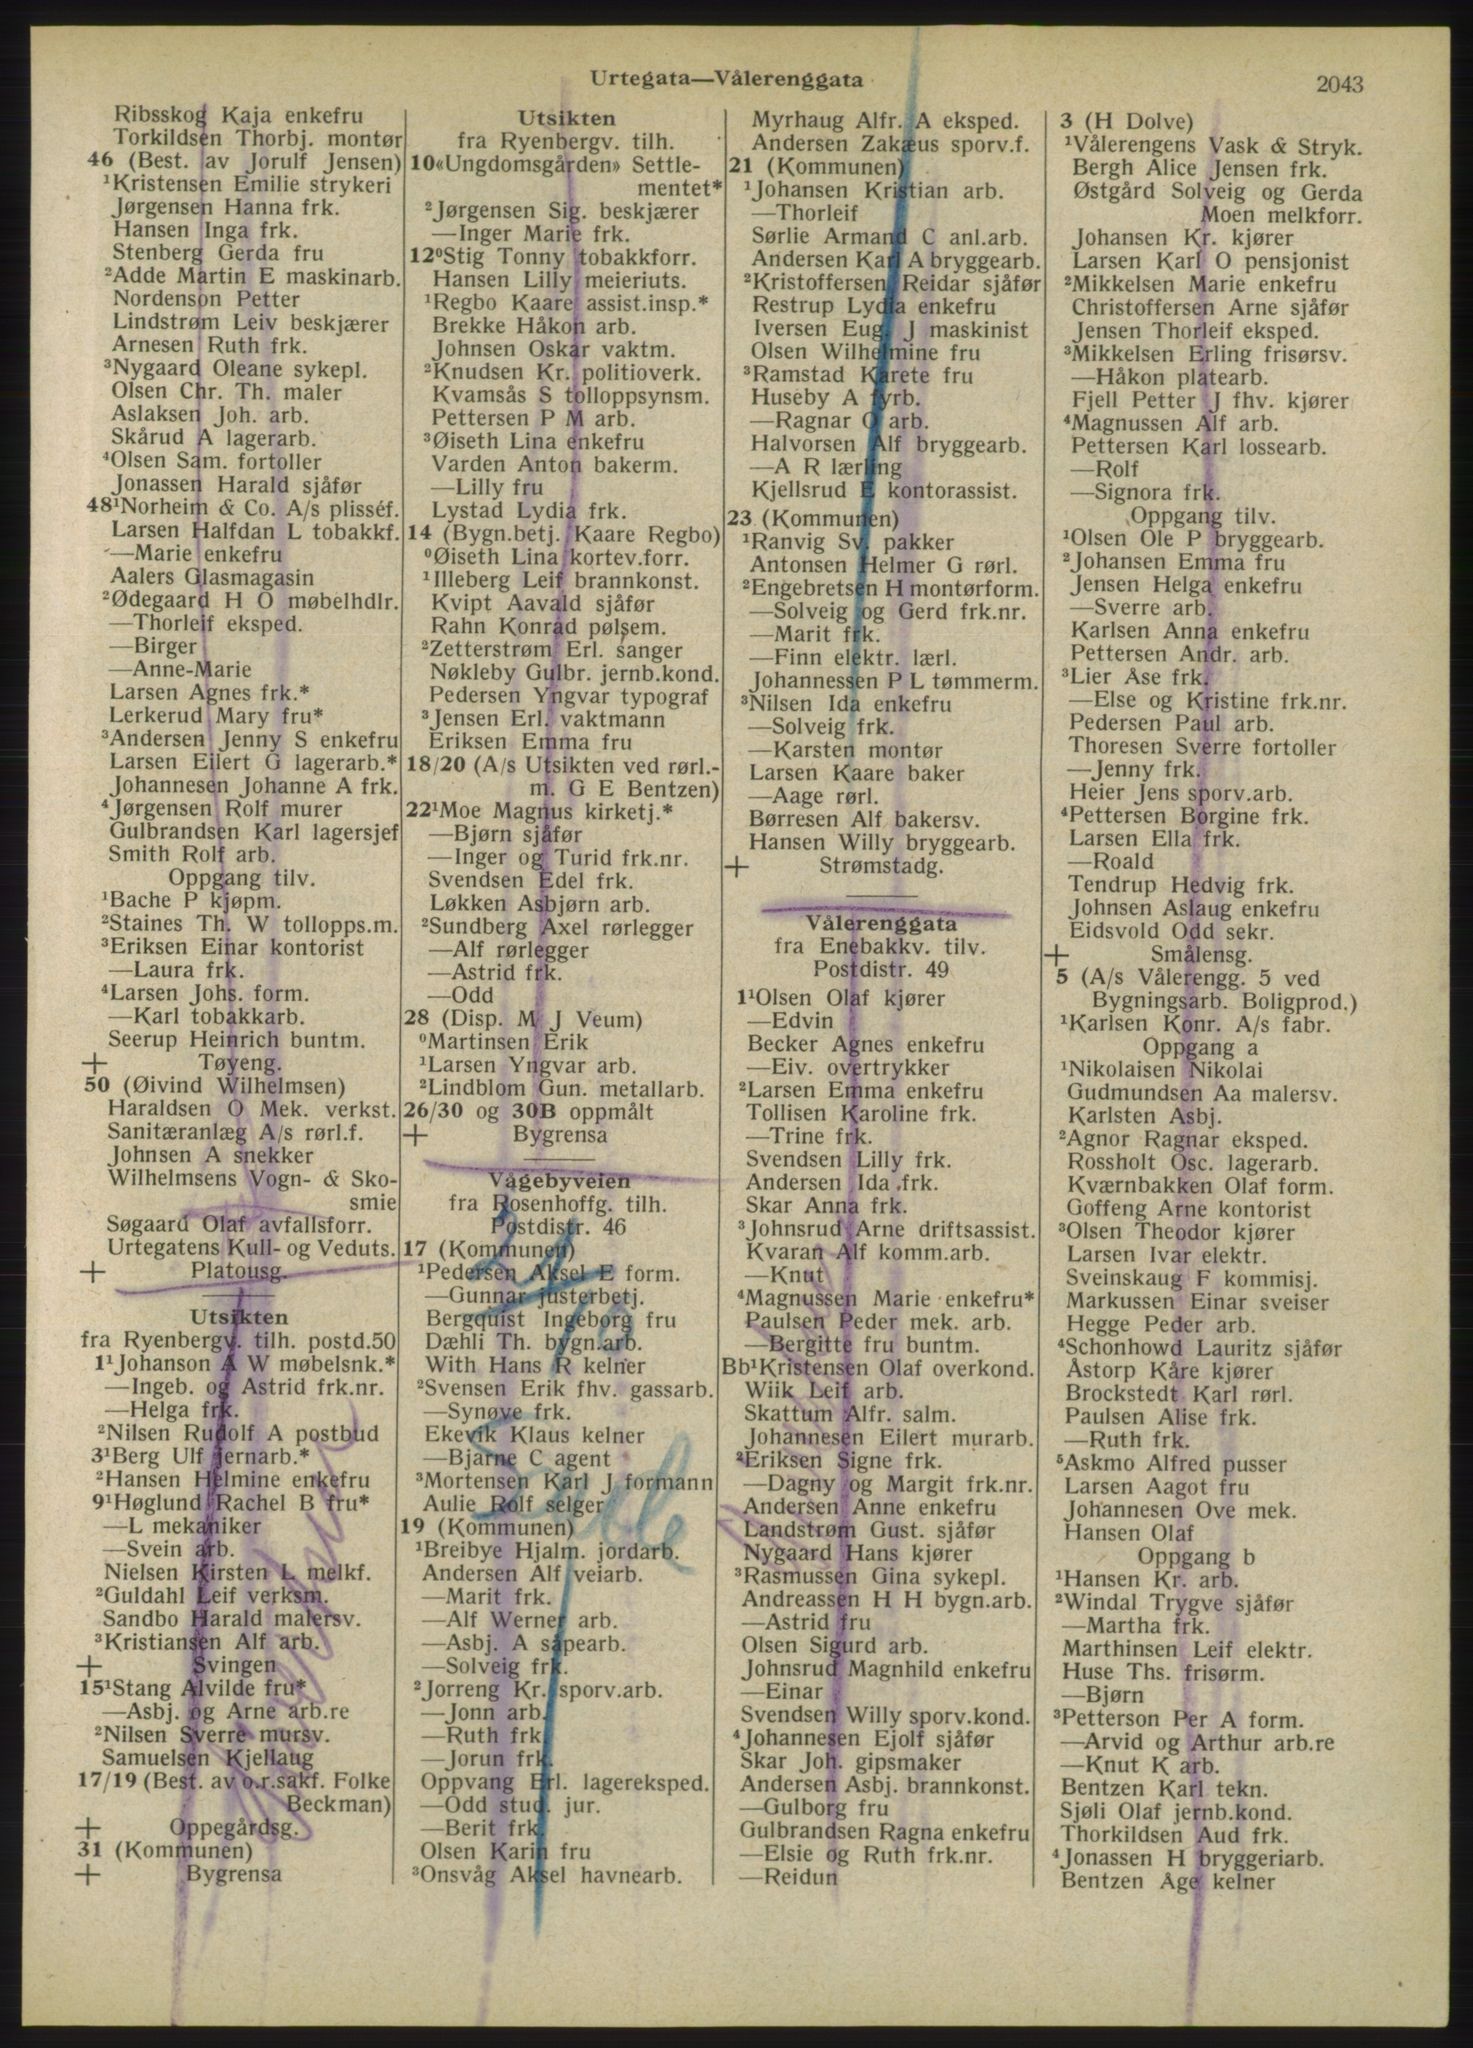 Urtegata—Vålerenggata
2043
Ribsskog Kaja enkefru
Torkildsen Thorbj. montør
46 (Best. av Jorulf Jensen)
¹Kristensen Emilie strykeri
Jørgensen Hanna frk.
Hansen Inga frk.
Stenberg Gerda fru
²Adde Martin E maskinarb.
Nordenson Petter
Lindstrøm Leiv beskjærer
Arnesen Ruth frk.
³Nygaard Oleane sykepl.
Olsen Chr. Th. maler
Aslaksen Joh. arb.
Skårud A lagerarb.
⁴Olsen Sam. fortoller
Jonassen Harald sjåfør
48¹Norheim & Co. A/s plisséf.
Larsen Halfdan L tobakkf.
—Marie enkefru
Aalers Glasmagasin
²Ødegaard H O møbelhdlr.
—Thorleif eksped.
—Birger
—Anne-Marie
Larsen Agnes frk.*
Lerkerud Mary fru*
³Andersen Jenny S enkefru
Larsen Eilert G lagerarb.*
Johannesen Johanne A frk.
⁴Jørgensen Rolf murer
Gulbrandsen Karl lagersjef
Smith Rolf arb.
Oppgang tilv.
¹Bache P kjøpm.
²Staines Th. W tollopps.m.
³Eriksen Einar kontorist
—Laura frk.
⁴Larsen Johs. form.
—Karl tobakkarb.
Seerup Heinrich buntm.
+ Tøyeng.
50 (Øivind Wilhelmsen)
Haraldsen O Mek. verkst.
Sanitæranlæg A/s rørl.f.
Johnsen A snekker
Wilhelmsens Vogn- & Sko-
smie
Søgaard Olaf avfallsforr.
Urtegatens Kull- og Veduts.
+ Platousg.
Utsikten
fra Ryenbergv. tilh. postd.50
1¹Johanson A W møbelsnk.*
—Ingeb. og Astrid frk.nr.
—Helga frk.
²Nilsen Rudolf A postbud
3¹Berg Ulf jernarb.*
²Hansen Helmine enkefru
9¹Høglund Rachel B fru*
—L mekaniker
—Svein arb.
Nielsen Kirsten L melkf.
²Guldahl Leif verksm.
Sandbo Harald malersv.
³Kristiansen Alf arb.
+ Svingen
15¹Stang Alvilde fru*
—Asbj. og Arne arb.re
²Nilsen Sverre mursv.
Samuelsen Kjellaug
17/19 (Best. av o.r.sakf. Folke
Beckman)
+ Oppegårdsg.
31 (Kommunen)
+ Bygrensa
Utsikten
fra Ryenbergv. tilh.
10«Ungdomsgården» Settle-
mentet*
²Jørgensen Sig. beskjærer
—Inger Marie frk.
12⁰Stig Tonny tobakkforr.
Hansen Lilly meieriuts.
¹Regbo Kaare assist.insp.*
Brekke Håkon arb.
Johnsen Oskar vaktm.
²Knudsen Kr. politioverk.
Kvamsås S tolloppsynsm.
Pettersen P M arb.
³Øiseth Lina enkefru
Varden Anton bakerm.
—Lilly fru
Lystad Lydia frk.
14 (Bygn.betj. Kaare Regbo)
⁰Øiseth Lina kortev.forr.
¹Illeberg Leif brannkonst.
Kvipt Aavald sjåfør
Rahn Konrad pølsem.
²Zetterstrøm Erl. sanger
Nøkleby Gulbr. jernb.kond.
Pedersen Yngvar typograf
³Jensen Erl. vaktmann
Eriksen Emma fru
18/20 (A/s Utsikten ved rørl.-
m. G E Bentzen)
22¹Moe Magnus kirketj.*
—Bjørn sjåfør
—Inger og Turid frk.nr.
Svendsen Edel frk.
Løkken Asbjørn arb.
²Sundberg Axel rørlegger
—Alf rørlegger
—Astrid frk.
—Odd
28 (Disp. M J Veum)
⁰Martinsen Erik
¹Larsen Yngvar arb.
²Lindblom Gun. metallarb.
26/30 og 30B oppmålt
+ Bygrensa
Vågebyveien
fra Rosenhoffg. tilh.
Postdistr. 46
17 (Kommunen)
¹Pedersen Aksel E form.
—Gunnar justerbetj.
Bergquist Ingeborg fru
Dæhli Th. bygn.arb.
With Hans R kelner
²Svensen Erik fhv. gassarb.
—Synøve frk.
Ekevik Klaus kelner
—Bjarne C agent
³Mortensen Karl J formann
Aulie Rolf selger
19 (Kommunen)
¹Breibye Hjalm. jordarb.
Andersen Alf veiarb.
—Marit frk.
—Alf Werner arb.
—Asbj. A såpearb.
—Solveig frk.
²Jorreng Kr. sporv.arb.
—Jonn arb.
—Ruth frk.
—Jorun frk.
Oppvang Erl. lagereksped.
—Odd stud. jur.
—Berit frk.
Olsen Karin fru
³Onsvåg Aksel havnearb.
Myrhaug Alfr. A eksped.
Andersen Zakæus sporv.f.
21 (Kommunen)
¹Johansen Kristian arb.
—Thorleif
Sørlie Armand C anl.arb.
Andersen Karl A bryggearb.
²Kristoffersen Reidar sjåfør
Restrup Lydia enkefru
Iversen Eug. J maskinist
Olsen Wilhelmine fru
³Ramstad Karete fru
Huseby A fyrb.
—Ragnar O arb.
Halvorsen Alf bryggearb.
—A R lærling
Kjellsrud E kontorassist.
23 (Kommunen)
¹Ranvig Sv. pakker
Antonsen Helmer G rørl.
²Engebretsen H montørform.
—Solveig og Gerd frk.nr.
—Marit frk.
—Finn elektr. lærl.
Johannessen P L tømmerm.
³Nilsen Ida enkefru
—Solveig frk.
—Karsten montør
Larsen Kaare baker
—Aage rørl.
Børresen Alf bakersv.
Hansen Willy bryggearb.
+ Strømstadg.
Vålerenggata
fra Enebakkv. tilv.
Postdistr. 49
1¹Olsen Olaf kjører
—Edvin
Becker Agnes enkefru
—Eiv. overtrykker
²Larsen Emma enkefru
Tollisen Karoline frk.
—Trine frk.
Svendsen Lilly frk.
Andersen Ida frk.
Skar Anna frk.
³Johnsrud Arne driftsassist.
Kvaran Alf komm.arb.
—Knut
⁴Magnussen Marie enkefru*
Paulsen Peder mek. arb.
—Bergitte fru buntm.
Bb¹Kristensen Olaf overkond.
Wiik Leif arb.
Skattum Alfr. salm.
Johannesen Eilert murarb.
²Eriksen Signe frk.
—Dagny og Margit frk.nr.
Andersen Anne enkefru
Landstrøm Gust. sjåfør
Nygaard Hans kjører
³Rasmussen Gina sykepl.
Andreassen H H bygn.arb.
—Astrid fru
Olsen Sigurd arb.
Johnsrud Magnhild enkefru
—Einar
Svendsen Willy sporv.kond.
⁴Johannesen Ejolf sjåfør
Skar Joh. gipsmaker
Andersen Asbj. brannkonst.
—Gulborg fru
Gulbrandsen Ragna enkefru
—Elsie og Ruth frk.nr.
—Reidun
3 (H Dolve)
¹Vålerengens Vask & Stryk.
Bergh Alice Jensen frk.
Østgård Solveig og Gerda
Moen melkforr.
Johansen Kr. kjører
Larsen Karl O pensjonist
²Mikkelsen Marie enkefru
Christoffersen Arne sjåfør
Jensen Thorleif eksped.
³Mikkelsen Erling frisørsv.
—Håkon platearb.
Fjell Petter J fhv. kjører
⁴Magnussen Alf arb.
Pettersen Karl lossearb.
—Rolf
—Signora frk.
Oppgang tilv.
¹Olsen Ole P bryggearb.
²Johansen Emma fru
Jensen Helga enkefru
—Sverre arb.
Karlsen Anna enkefru
Pettersen Andr. arb.
³Lier Åse frk.
—Else og Kristine frk.nr.
Pedersen Paul arb.
Thoresen Sverre fortoller
—Jenny frk.
Heier Jens sporv.arb.
⁴Pettersen Borgine frk.
Larsen Ella frk.
—Roald
Tendrup Hedvig frk.
Johnsen Aslaug enkefru
Eidsvold Odd sekr.
+ Smålensg.
5 (A/s Vålerengg. 5 ved
Bygningsarb. Boligprod.)
¹Karlsen Konr. A/s fabr.
Oppgang a
¹Nikolaisen Nikolai
Gudmundsen Aa malersv.
Karlsten Asbj.
²Agnor Ragnar eksped.
Rossholt Osc. lagerarb.
Kværnbakken Olaf form.
Goffeng Arne kontorist
³Olsen Theodor kjører
Larsen Ivar elektr.
Sveinskaug F kommisj.
Markussen Einar sveiser
Hegge Peder arb.
⁴Schonhowd Lauritz sjåfør
Åstorp Kåre kjører
Brockstedt Karl rørl.
Paulsen Alise frk.
—Ruth frk.
⁵Askmo Alfred pusser
Larsen Aagot fru
Johannesen Ove mek.
Hansen Olaf
Oppgang b
¹Hansen Kr. arb.
²Windal Trygve sjåfør
—Martha frk.
Marthinsen Leif elektr.
Huse Ths. frisørm.
—Bjørn
³Petterson Per A form.
—Arvid og Arthur arb.re
—Knut K arb.
Bentzen Karl tekn.
Sjøli Olaf jernb.kond.
Thorkildsen Aud frk.
⁴Jonassen H bryggeriarb.
Bentzen Åge kelner